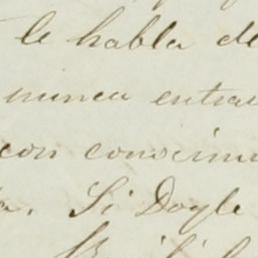 le habla de
nunca entra
con conocim
a. Si Doyle